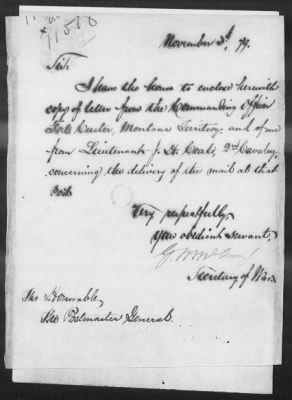 November 3d, 79.
Sir:
I have the honor to enclose herewith
copy of letter from the Commanding Officer
Fort Custer, Montana Territory, and of one
from Lieutenant J. H. Coale, 2nd Cavalry,
concerning the delivery of the mail at that
Post.
Very respectfully,
Your obedient servant,
Secretary of War.
The Honorable,
The Postmaster General.